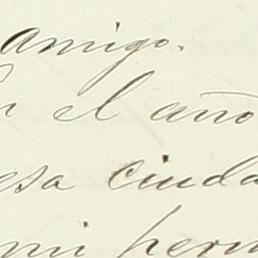 amigo.
n el año
esa ciuda
mi perm